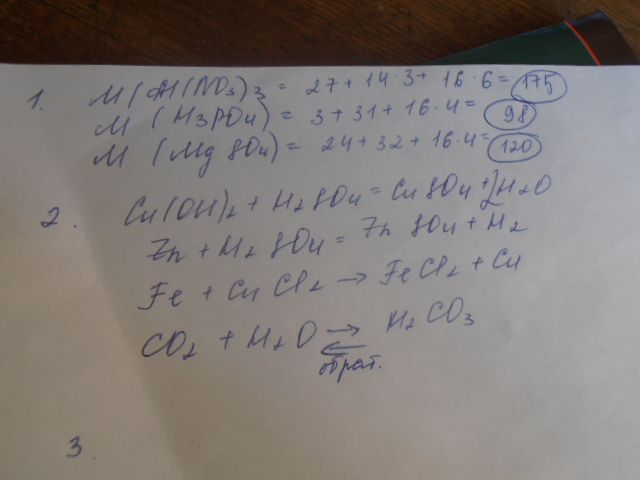 1. M(Al(NO3)3 = 27+14·3+ 16·6= 175
M (H3PO4) = 3+31+16·4= 98
M (MgSO4) = 24+32+16·4= 120
2. Cu(OH)2 + H2SO4 = CuSO4 + 2H2O
Zn + H2SO4 = ZnSO4 + H2
Fe + CuCl2 → FeCl2 + Cu
CO2 + H2O ⇄ H2CO3
обрат.
3.